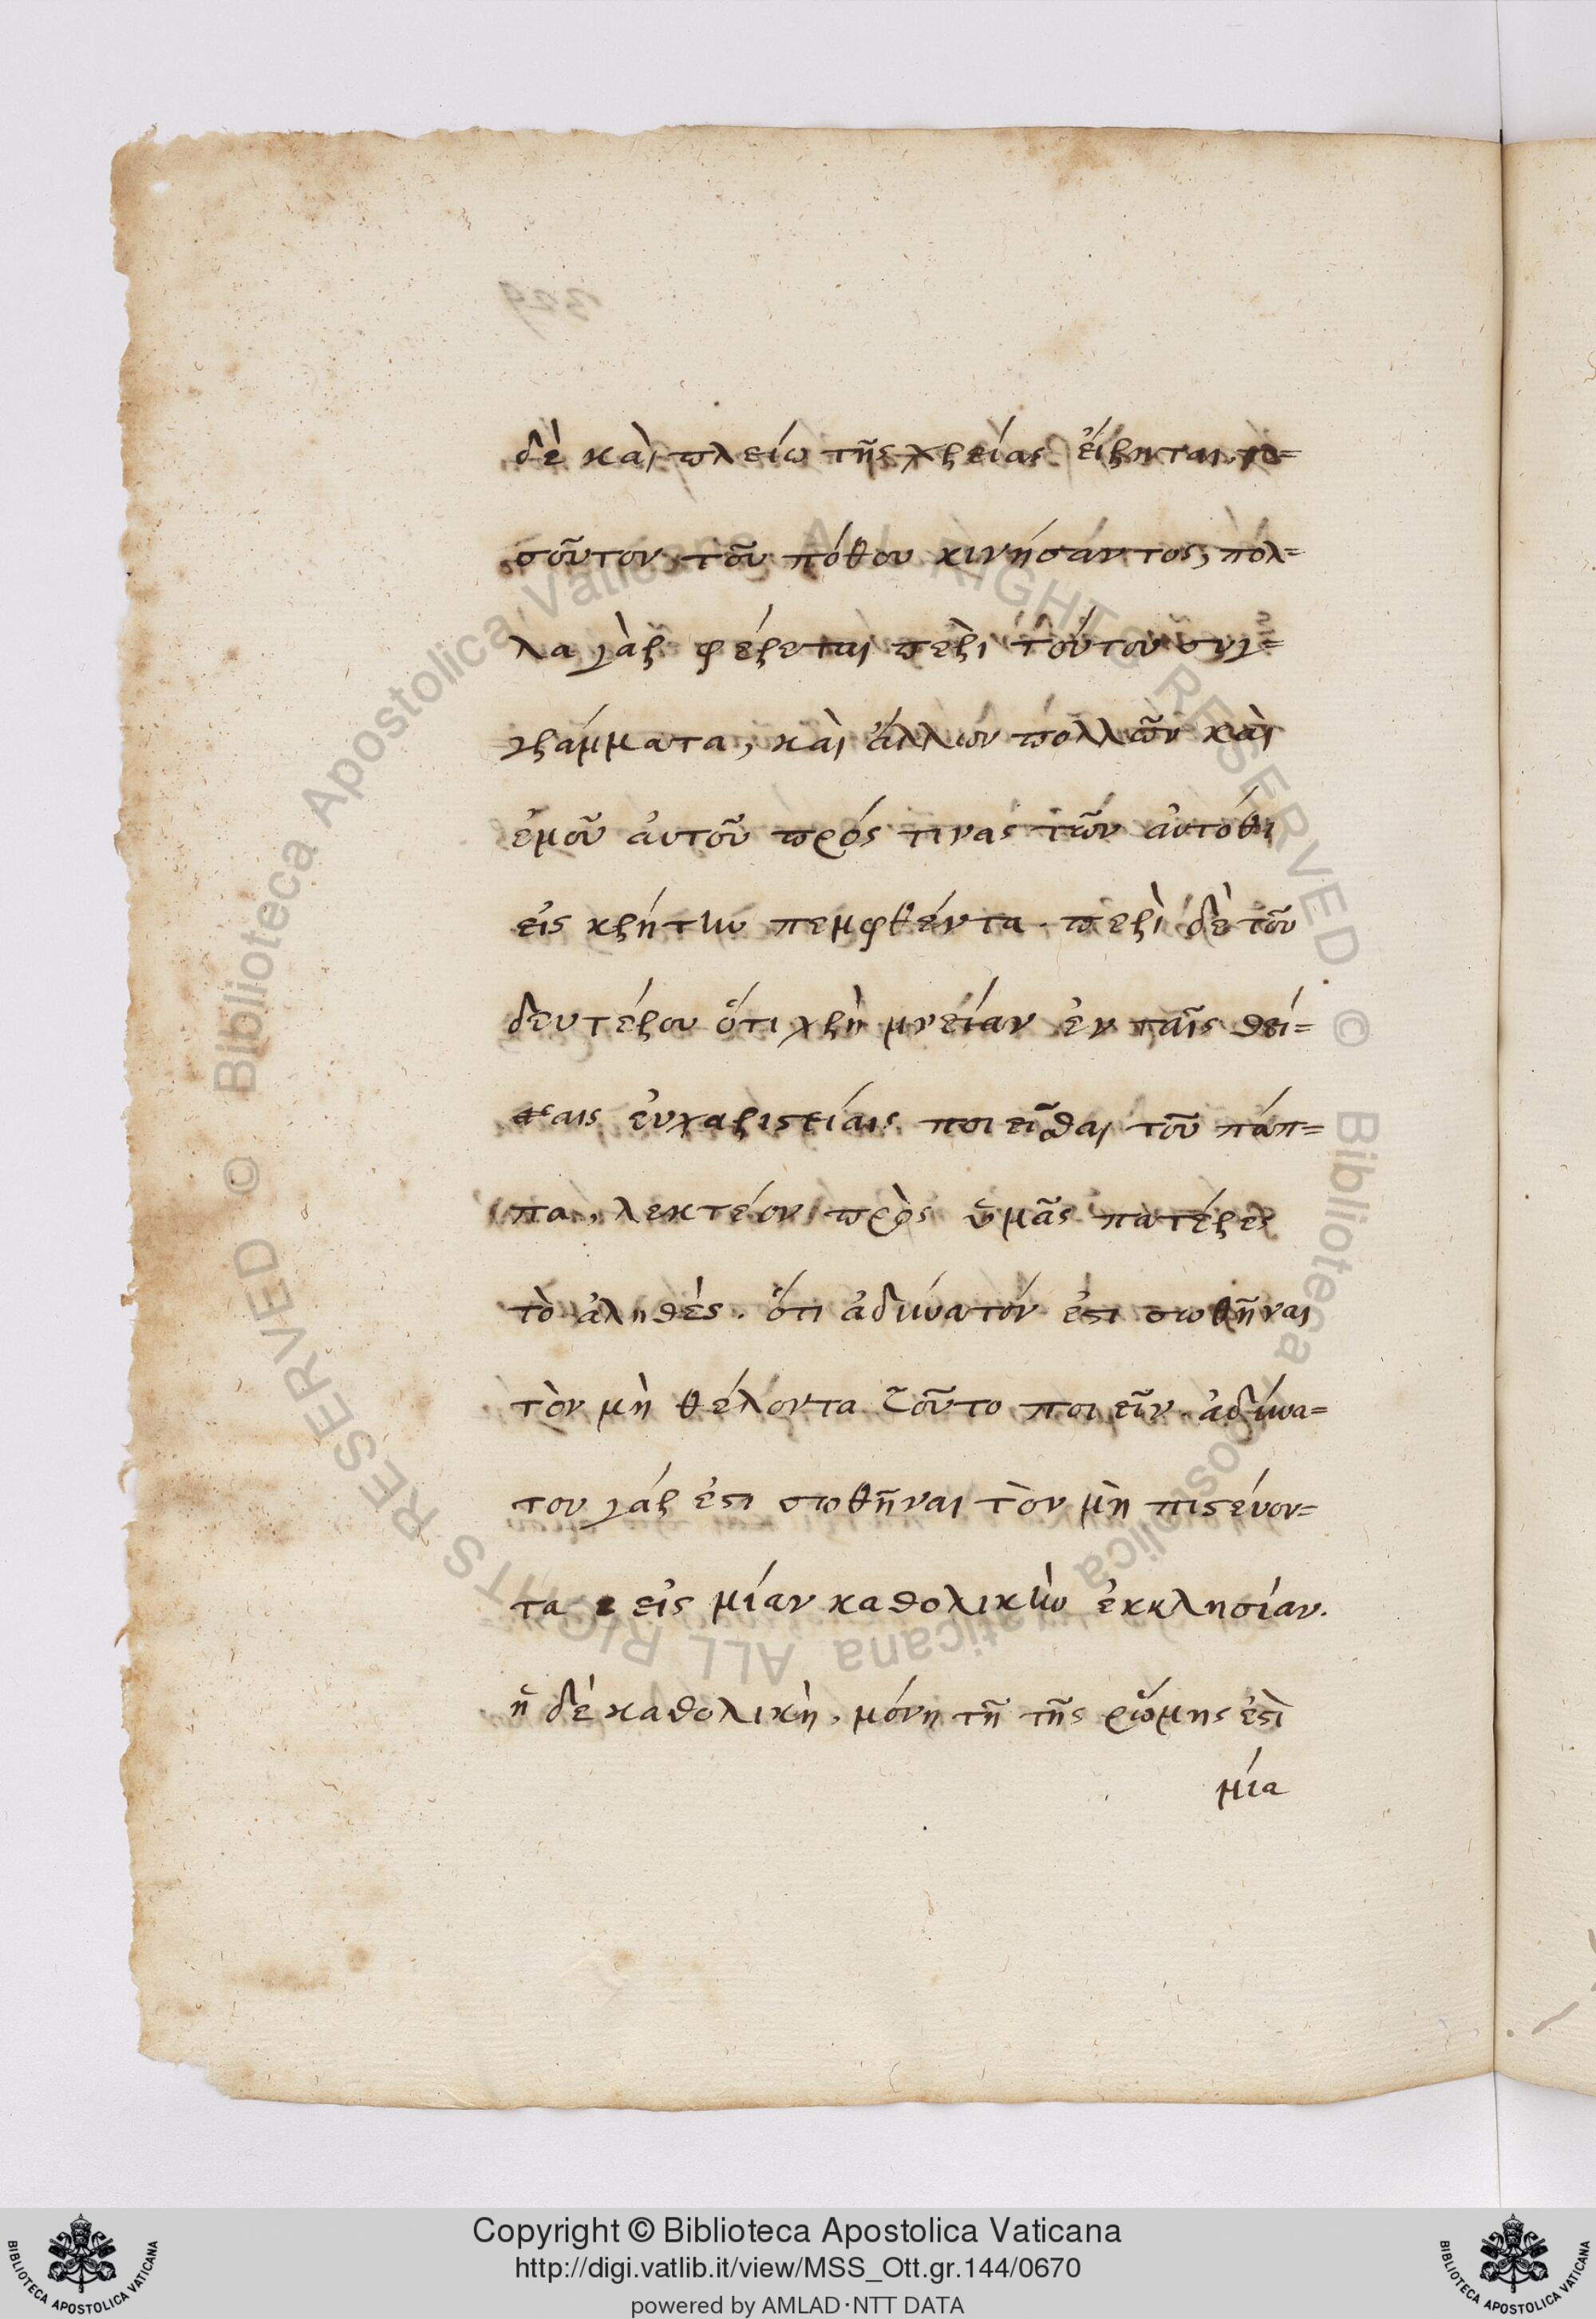 δὲ καὶ πλείω τῆς χρείας εἴρηται, το=
σοῦτον τοῦ πόθου κινήσαντος, πόλ=
λα γὰρ φέρεται περὶ τούτου συγ=
γράμματα, καὶ ἄλλων πολλῶν καὶ
ἐμοῦ ἀυτοῦ πρός τινας τῶν ἀυτόθι
εἰς κρήτην πεμφθέντα. περὶ δὲ τοῦ
δευτέρου ὅτι χρὴ μνείαν ἐν ταῖς θεί=
αις ἐυχαριστείαις ποιεῖσθαι τοῦ πάπ=
πα, λεκτέον πρὸς ὑμᾶς πατέρες
τὸ ἀληθές. ὅτι ἀδύνατόν ἐστι σωθῆναι
τὸν μὴ θέλοντα τοῦτο ποιεῖν. ἀδύνα=
τον γάρ ἐστι σωθῆναι τὸν μὴ πιστέυον=
τα εἰς μίαν καθολικὴν ἐκκλησίαν.
ἡ δὲ καθολικὴ, μόνη τῆ τῆς ῥώμης ἐστὶ
μία
329
Copyright © Biblioteca Apostolica Vaticana
http://digi.vatlib.it/view/MSS_Ott.gr.144/0670
powered by AMLAD·NTT DATA
BIBLIOTECA APOSTOLICA VATICANA
BIBLIOTECA APOSTOLICA VATICANA
© Biblioteca Apostolica Vaticana ALL RIGHTS RESERVED © Biblioteca Apostolica Vaticana ALL RIGHTS RESERVED